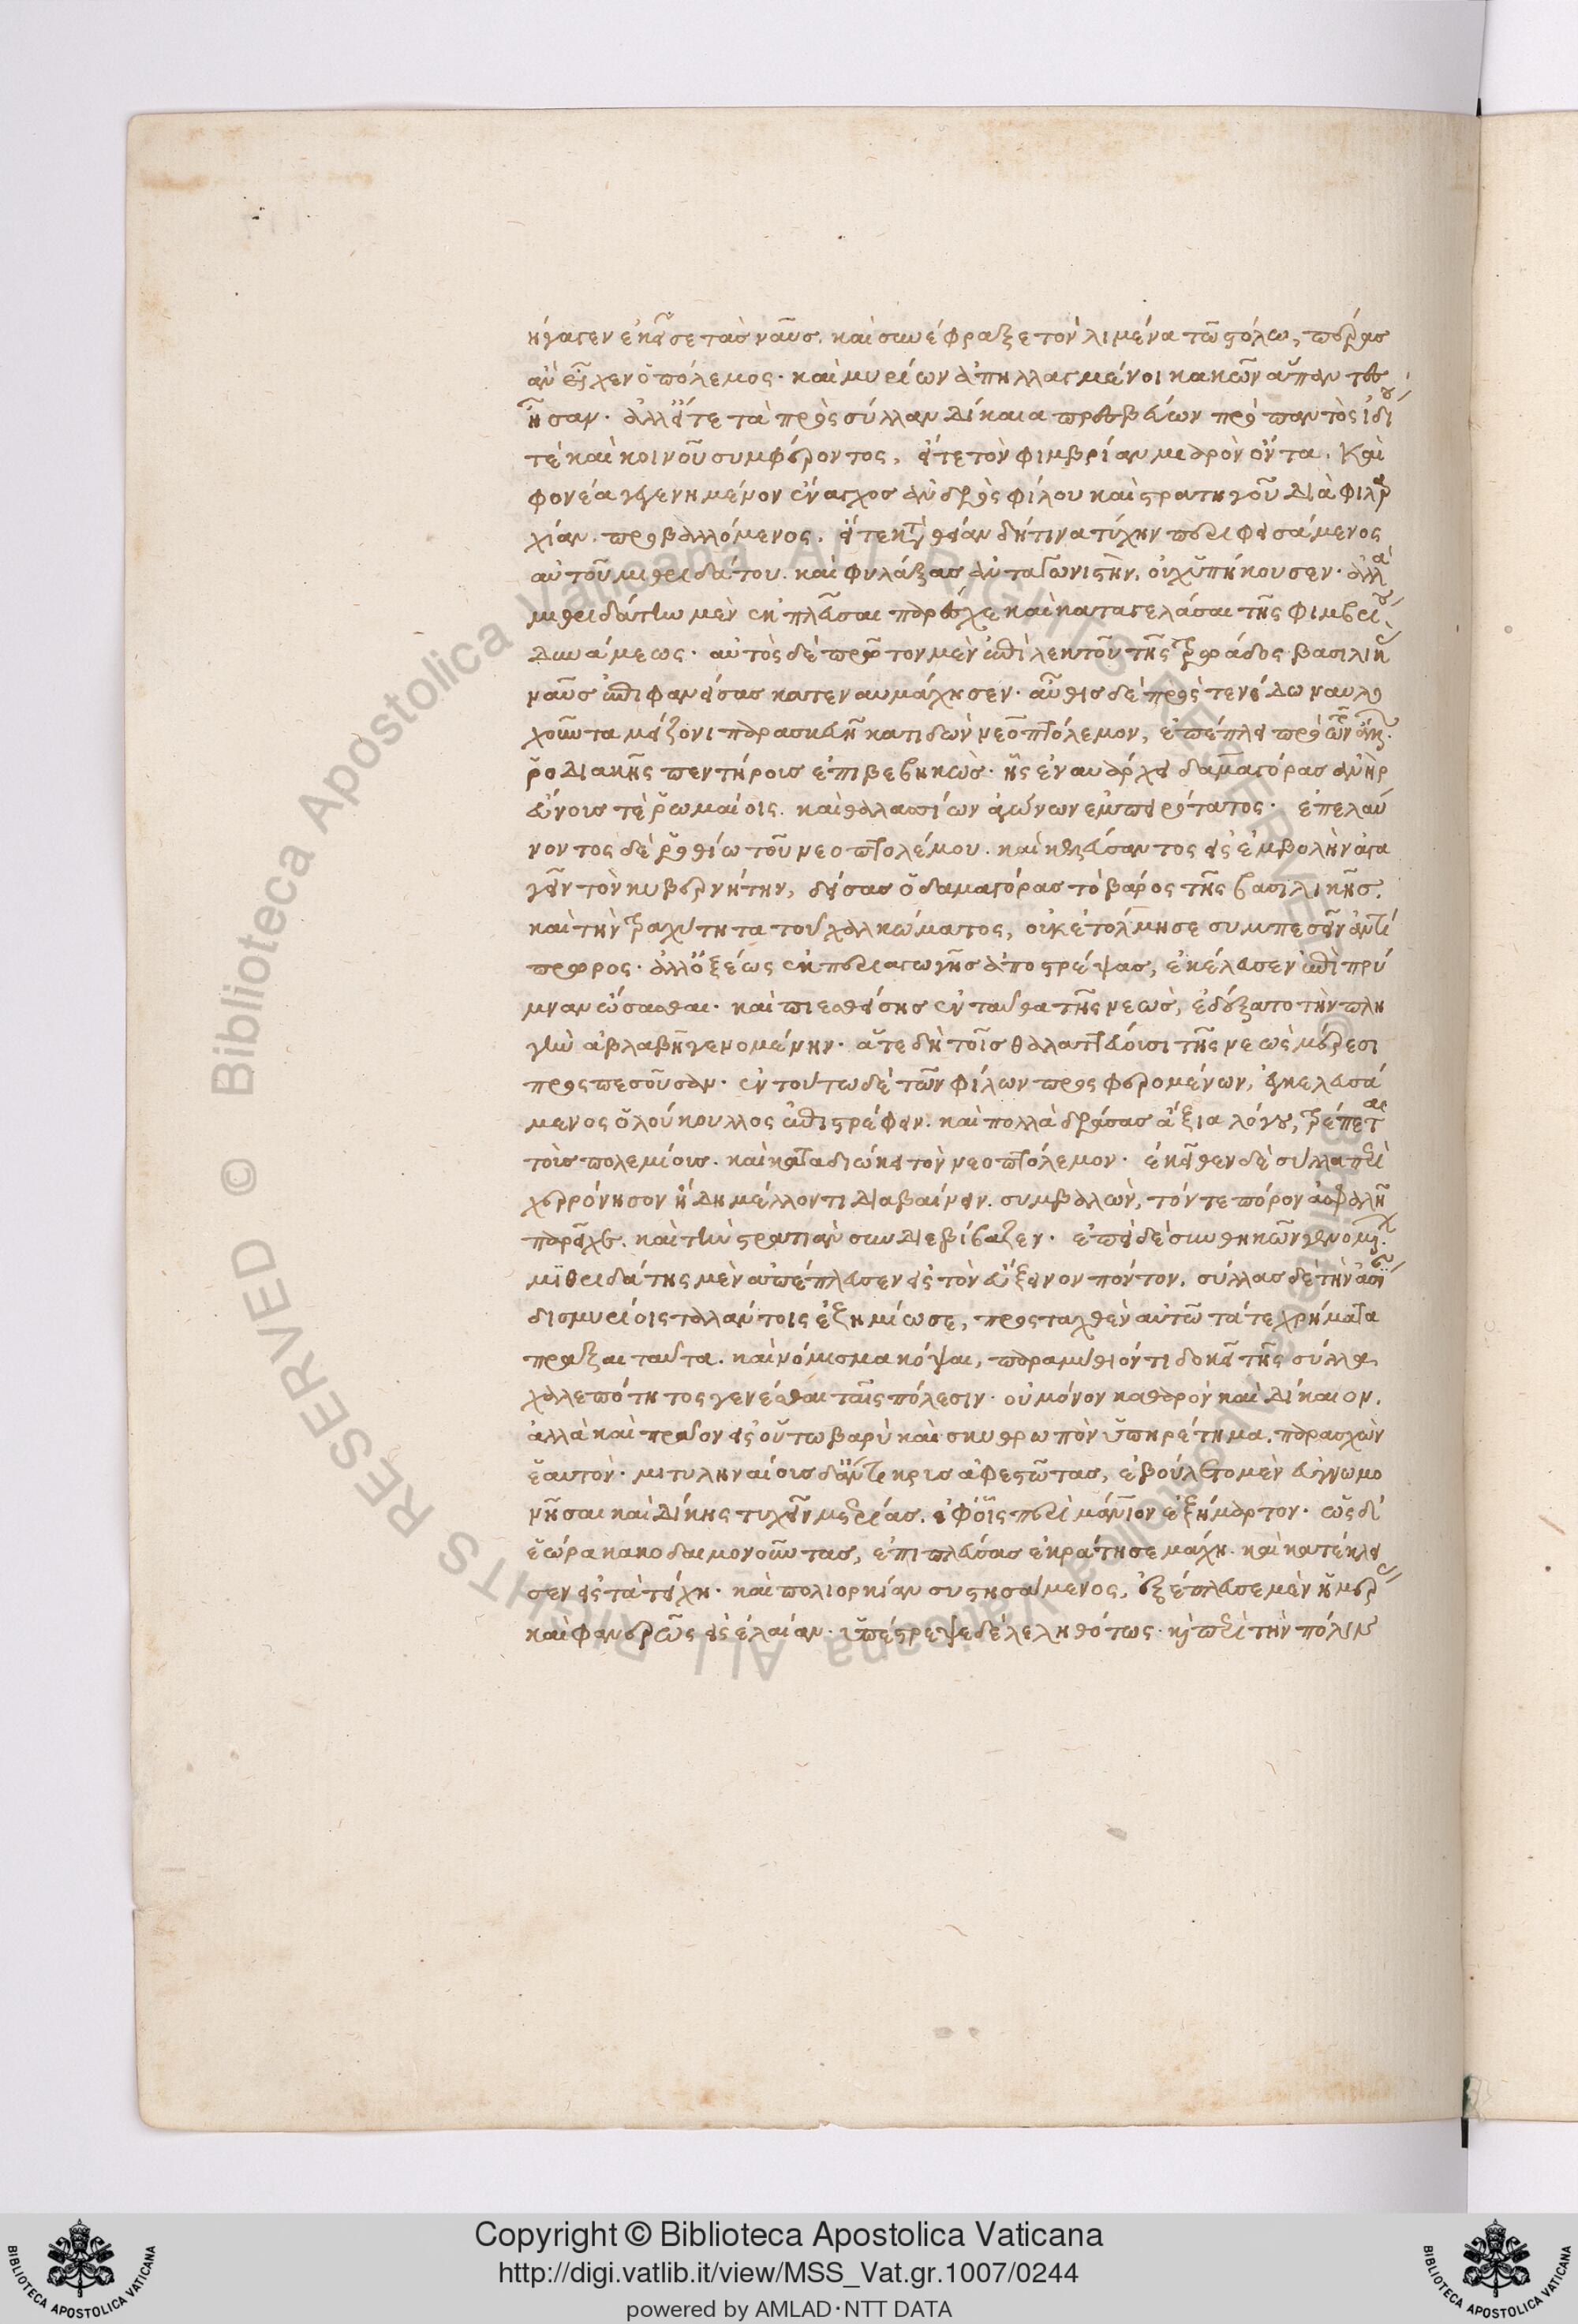 ήγαγεν ἐκεῖσε τὰς ναῦς. καὶ συνέφραξε τὸν λιμένα τῶ στόλω, πέρας
ἂν εἶχεν ὁ πόλεμος· καὶ μυρίων ἀπηλλαγμένοι κακῶν ἅπαντες
ἦσαν. ἀλλ' εἴτε τὰ πρὸς σύλλαν δίκαια πρεσβεύων πρὸ παντὸς ἰδίου
τὲ καὶ κοινοῦ συμφέροντος, εἴτε τὸν φιμβρίαν μιαρὸν ὄντα. καὶ
φονέα γεγενημένον ἔναγχος ἀνδρὸς φίλου καὶ στρατηγοῦ διὰ φιλαρ
χίαν. προβαλλόμενος. εἴτε κατὰ θείαν δή τινα τύχην περιφεισάμενος
αὐτοῦ μιθριδάτου. καὶ φυλάξας ἀνταγωνιστὴν. οὐχ ὑπήκουσεν. ἀλλὰ
μιθριδάτην μὲν ἐκπλεῦσαι παρέσχε καὶ καταγελάσαι τῆς φιμβρίου
δυνάμεως. αὐτὸς δὲ πρῶτον μὲν ἐπὶ λεκτοῦ τῆς τρωάδος βασιλικὰς
ναῦς ἐπιφανείσας κατεναυμάχησεν. αὖθις δὲ πρὸς τενέδω ναυλο
χοῦντα μείζονι παρασκευῆ κατιδὼν νεοπτόλεμον, ἐπέπλει πρὸ τῶν ἄλλων.
ῥοδιακῆς πεντήροις ἐπιβεβηκὼς. ἧς ἐναυάρχει δαμαγόρας ἀνὴρ
εὔνοις τὲ ῥωμαίοις. καὶ θαλασσίων ἀγώνων ἐμπειρότατος. ἐπελαύ
νοντος δὲ ῥοθίω τοῦ νεοπτολέμου. καὶ κελεύσαντος εἰς ἐμβολὴν ἀγα
γεῖν τὸν κυβερνήτην, δείσας ὁ δαμαγόρας τὸ βάρος τῆς βασιλικῆς.
καὶ τὴν τραχύτητα τοῦ χαλκώματος, οὐκ ἐτόλμησε συμπεσεῖν ἀντί
πρωρος. ἀλλ' ὀξέως ἐκ περιαγωγῆς ἀποστρέψας, ἐκέλευσεν ἐπὶ πρύ
μναν ὤσασθαι. καὶ πιεσθείσης ἐνταῦθα τῆς νεὼς, ἐδέξατο τὴν πλη
γὴν ἀβλαβῆ γενομένην. ἅτε δὴ τοῖς θαλαττεύοισι τῆς νεὼς μέρεσι
προσπεσοῦσαν. ἐν τούτω δὲ τῶν φίλων προσφερομένων, ἐγκελευσά
μενος ὁ λούκουλλος ἐπιστρέφειν. καὶ πολλὰ δράσας ἄξια λόγου, τρέπεται
τοὺς πολεμίοις. καὶ καταδιώκει τὸν νεοπτόλεμον. ἐκεῖθεν δὲ σύλλα περὶ
χερρόνησον ἤδη μέλλοντι διαβαίνειν. συμβαλὼν, τόν τε πόρον ἀσφαλῆ
παρεῖχε. καὶ τὴν στρατιὰν συνδιεβίβαζεν. ἐπεὶ δὲ συνθηκῶν γενομένων
μιθριδάτης μὲν ἀπέπλευσεν εἰς τὸν εὔξεινον πόντον. σύλλας δὲ τὴν ἀσίαν
δισμυρίοις ταλάντοις ἐζημίωσε, προσταχθὲν αὐτῶ τά τε χρήματα
πρᾶξαι ταῦτα. καὶ νόμισμα κόψαι, παραμύθιόν τι δοκεῖ τῆς σύλλα
χαλεπότητος γενέσθαι ταῖς πόλεσιν. οὐ μόνον καθαρὸν καὶ δίκαιον.
ἀλλὰ καὶ πρᾶον εἰς οὕτω βαρὺ καὶ σκυθρωπὸν ὑπηρέτημα. παρασχὼν
ἑαυτὸν. μιτυληναίοις δ' ἄντικρις ἀφεστῶτας, ἐβούλετο μὲν εὐγνωμο
νῆσαι καὶ δίκης τυχεῖν μετρίας. ἐφ' οἷς περὶ μάνιον ἐξήμαρτον. ὡς δὲ
ἑώρα κακοδαιμονοῦντας, ἐπιπλεύσας ἐκράτησε μάχη. καὶ κατέκλει
σεν εἰς τὰ τείχη. καὶ πολιορκίαν συστησάμενος, ἐξέπλευσε μὲν ἡμέρας
καὶ φανερῶς εἰς ἐλαίαν. ὑπέστρεψε δὲ λεληθότως. καὶ περὶ τὴν πόλιν
Copyright © Biblioteca Apostolica Vaticana
http://digi.vatlib.it/view/MSS_Vat.gr.1007/0244
powered by AMLAD·NTT DATA